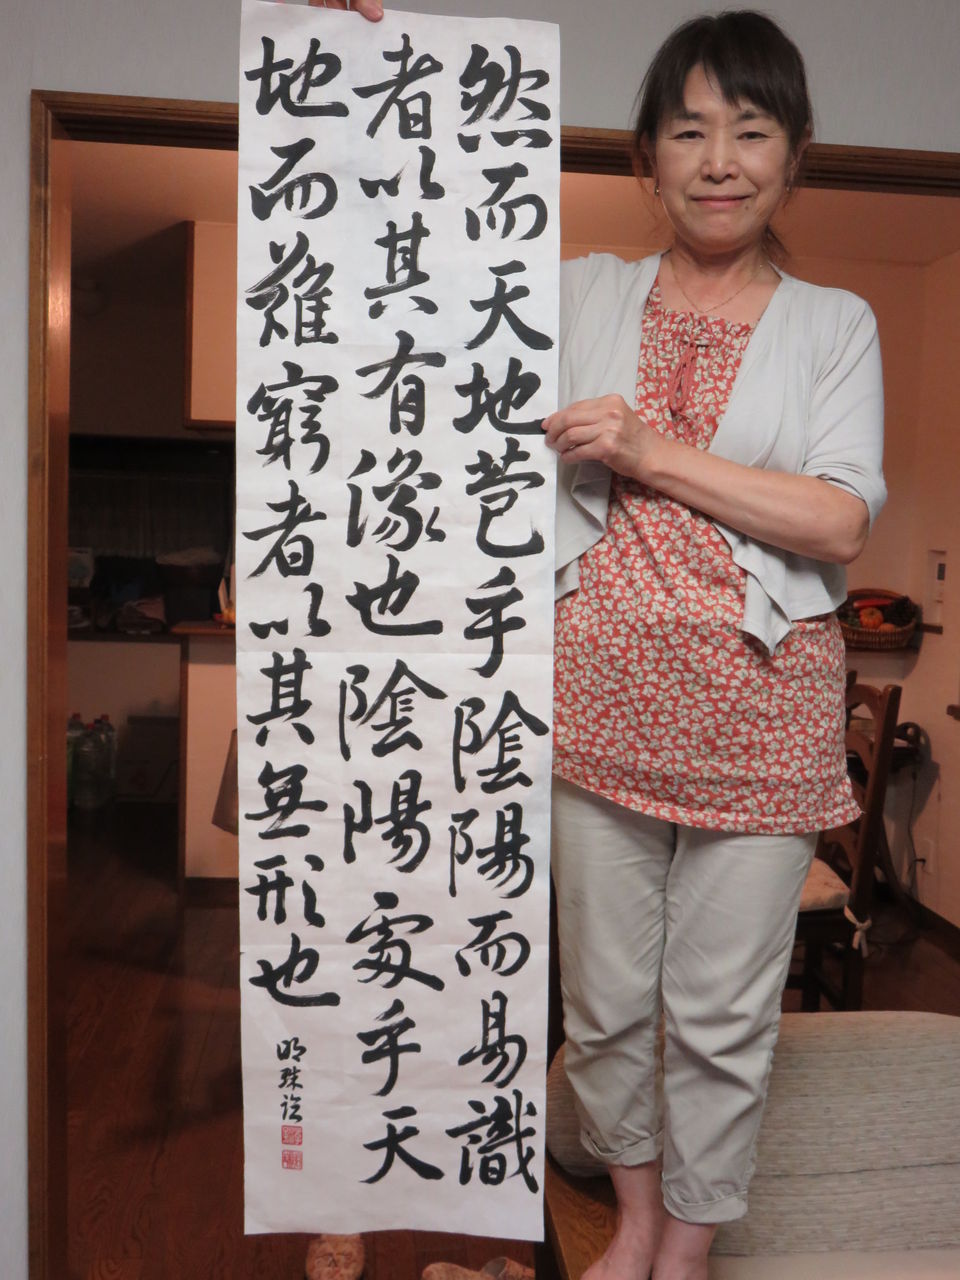 然而天地苞乎陰陽而易識
者以其有像也陰陽處乎天
地而難窮者以其無形也
明珠